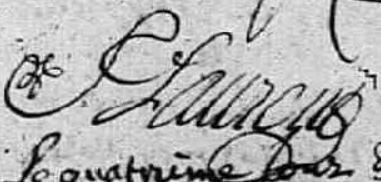 St Laurens
Le quatrième Jour